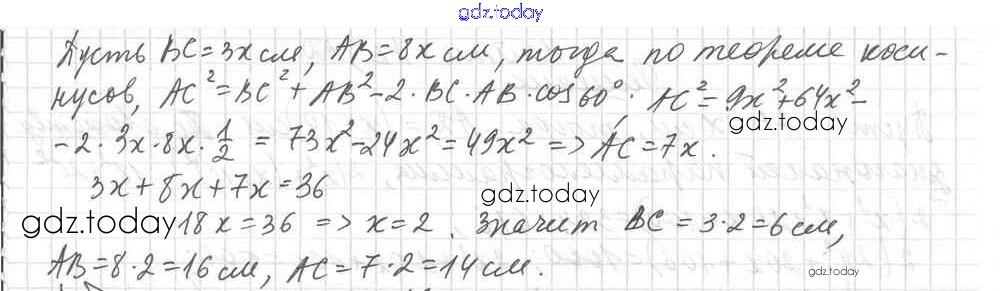 gdz.today
Пусть BC = 3x см, AB = 8x см, тогда по теореме коси-
нусов, AC² = BC² + AB² - 2 · BC · AB · cos 60°. AC² = 9x² + 64x² -
gdz.today
- 2 · 3x · 8x · 1/2 = 73x² - 24x² = 49x² => AC = 7x.
3x + 8x + 7x = 36
gdz.today
gdz.today 18x = 36 => x = 2. Значит BC = 3 · 2 = 6 см,
AB = 8 · 2 = 16 см, AC = 7 · 2 = 14 см.
gdz.today